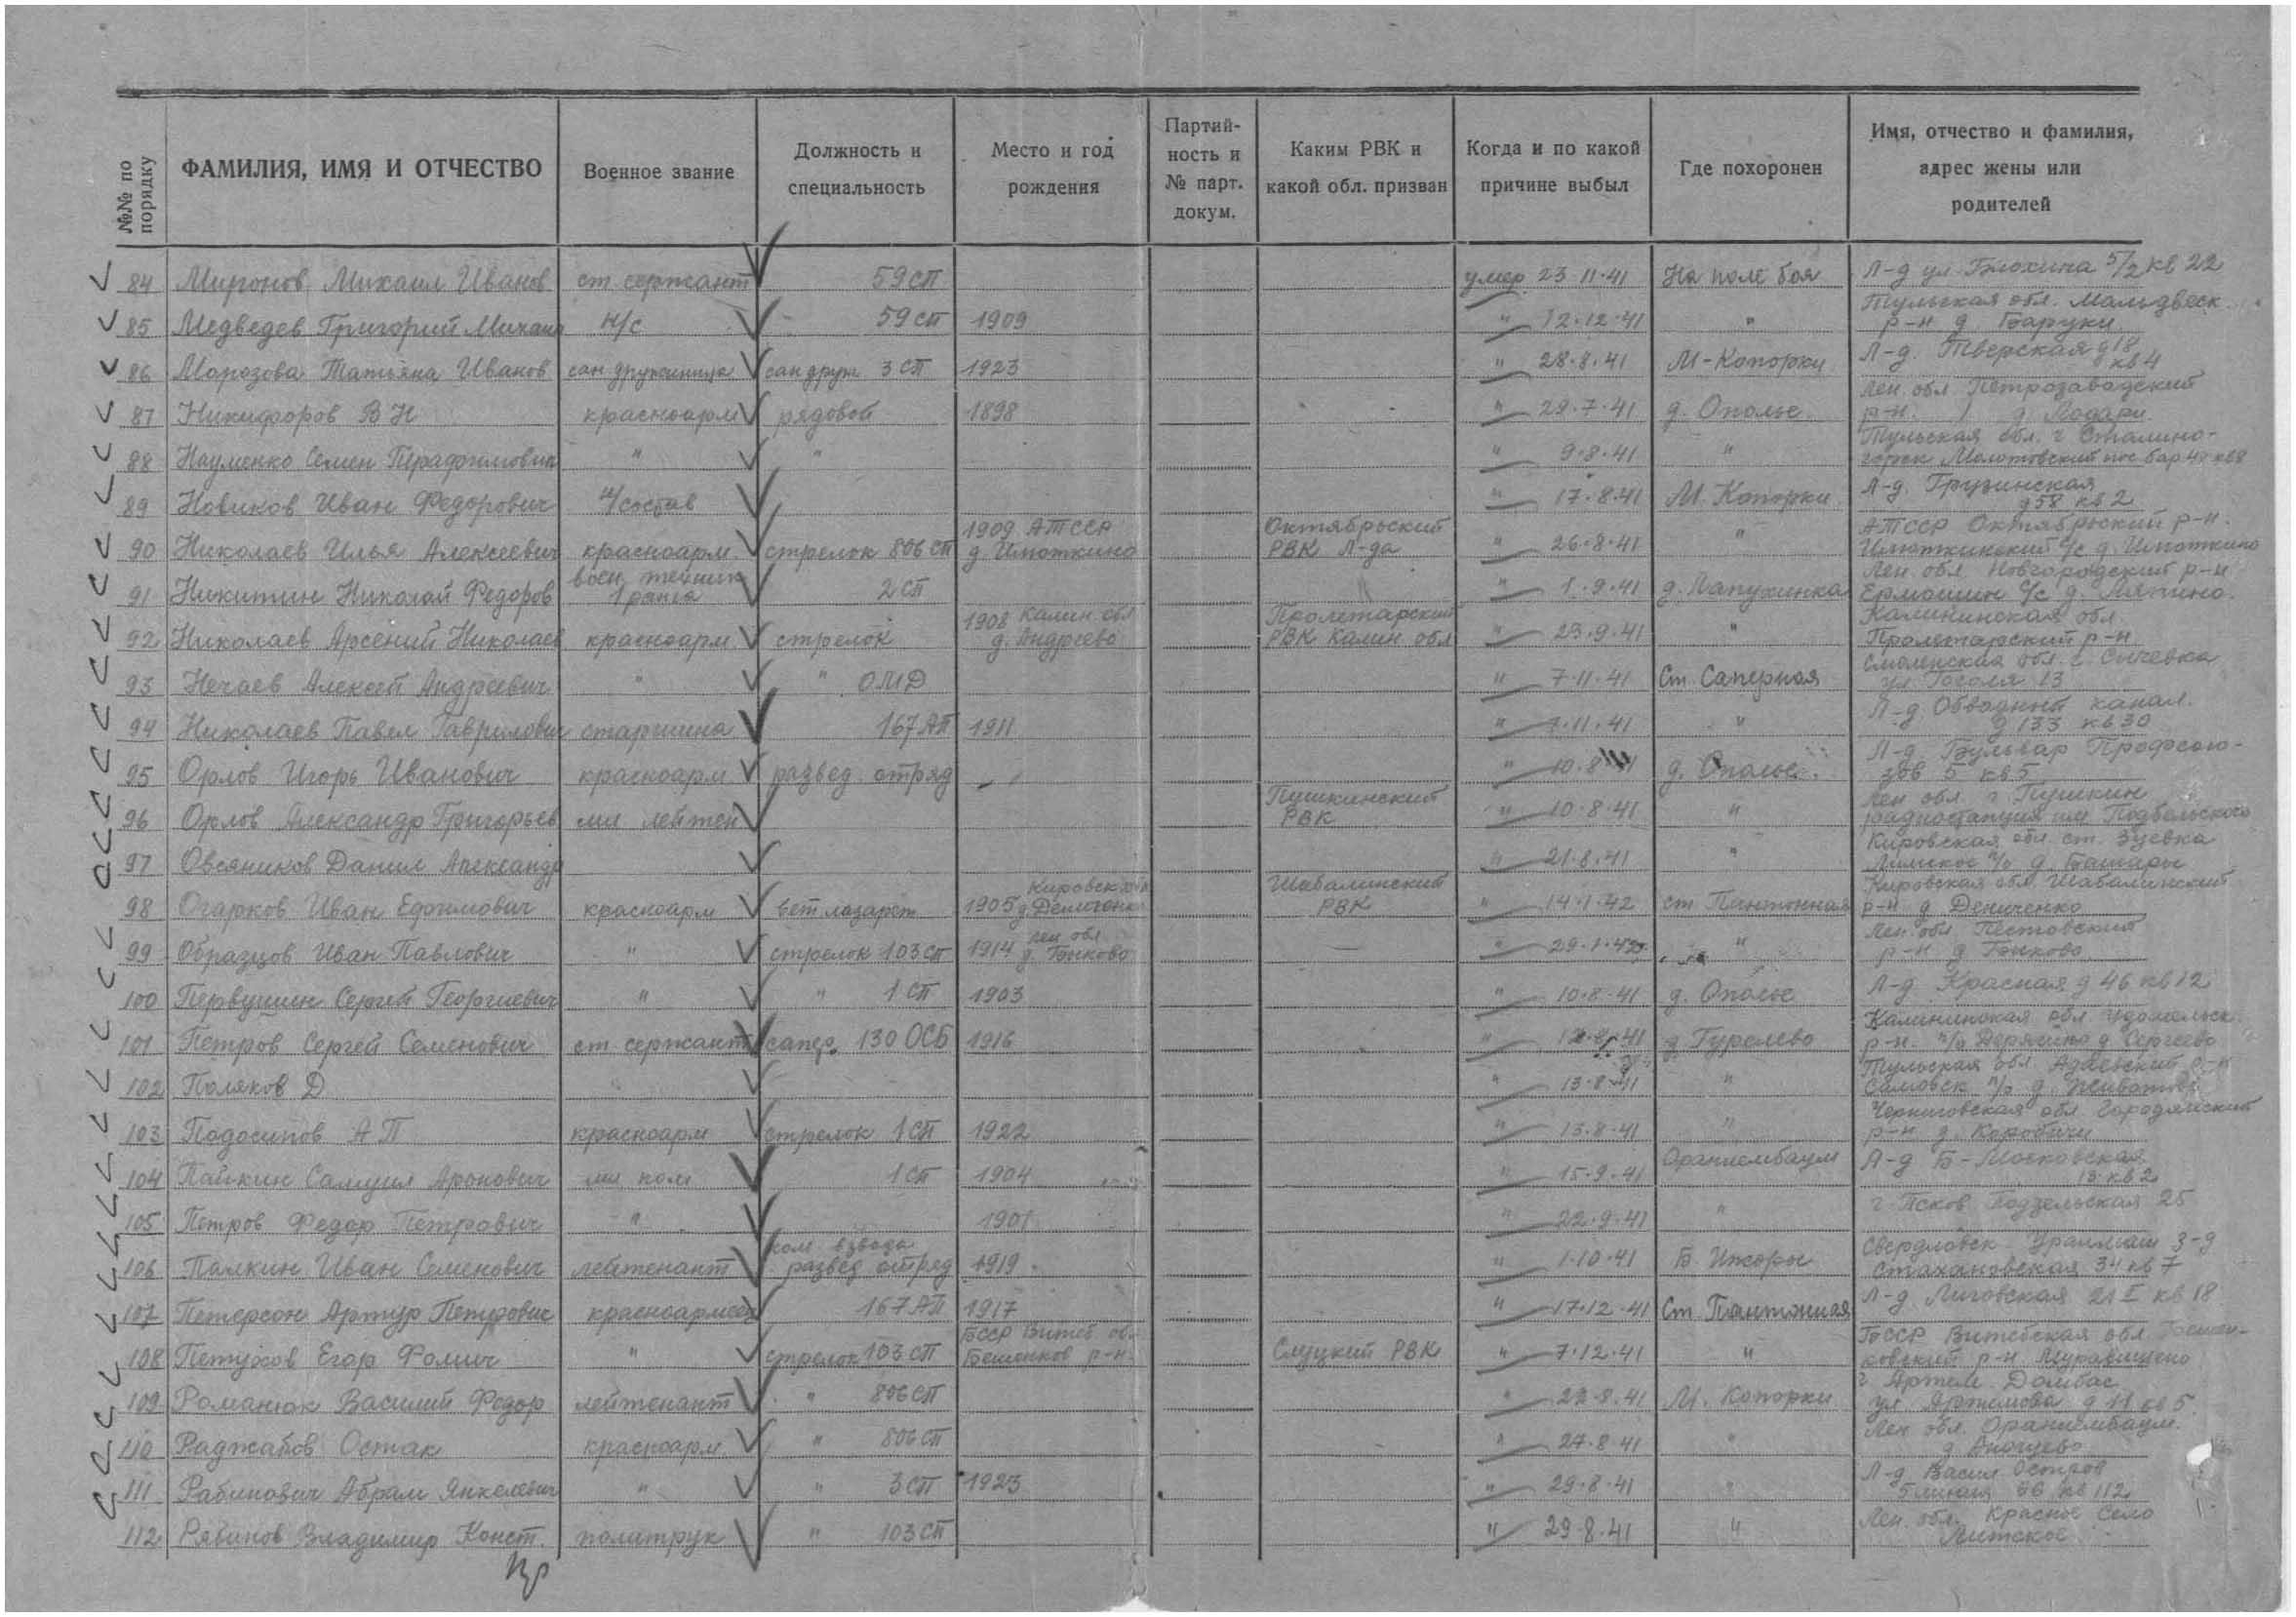 №№ по порядку
ФАМИЛИЯ, ИМЯ И ОТЧЕСТВО
Военное звание
Должность и специальность
Место и год рождения
Партийность и № парт. докум.
Каким РВК и какой обл. призван
Когда и по какой причине выбыл
Где похоронен
Имя, отчество и фамилия, адрес жены или родителей
84 Миронов Михаил Иванов ст. сержант 59 сп умер 23.11.41 На поле боя Л-д ул. Блохина 5/2 кв 22
85 Медведев Григорий Михаил Н/с 59 сп 1909 " 12.12.41 " Тульская обл. р-н д. Баруки
86 Морозова Татьяна Иванов сан дружинница сан друж 3 СП 1923 " 28.8.41 М-Копорки Л-д. Тверская д 18 кв 4
87 Никифоров В Н красноарм рядовой 1898 " 29.7.41 д. Ополье Лен. обл. Петрозаводский р-н. д.
88 Науменко Семен " " " 9.8.41 " Тульская обл. г Сталиногорск Молотовский пос бар 47 кв 8
89 Новиков Иван Федорович н/состав " 17.8.41 М. Копорки Л-д. Грузинская д 58 кв 2
90 Николаев Илья Алексеевич красноарм. стрелок 806 сп 1909 АТССР д. Ипаткино Октябрьский РВК Л-да " 26.8.41 " АТССР Октябрьский р-н. с/с д. Ипаткино
91 Никитин Николай Федоров воен. техник 1 ранга 2 СП " 1.9.41 д. Лапухинка Лен. обл. Новгородский р-н Ермошин с/с д. Ляпино.
92 Николаев Арсений Николаев красноарм. стрелок 1908 Калин. обл д. Андреево Пролетарский РВК Калин. обл " 23.9.41 " Калининская обл Пролетарский р-н
93 Нечаев Алексей Андреевич " " ОМД " 7.11.41 Ст. Саперная Смоленская обл. г. Сычевка ул. Гоголя 13
94 Николаев Павел Гаврилович старшина 167 АП 1911 " 7.11.41 " Л-д Обводный канал. д 133 кв 30
95 Орлов Игорь Иванович красноарм развед. отряд " 10.8 41 д. Ополье Л-д. Бульвар Профсоюзов 5 кв 5
96 Орлов Александр Григорьев мл лейтен Пушкинский РВК " 10.8.41 " Лен обл. г Пушкин радиостанция им Подбельского
97 Овсянников Данил Александр " 21.8.41 " Кировская обл. ст. Зуевка п/о д. Башары
98 Огарков Иван Ефимович красноарм вет лазарет 1905 Кировск обл Шабалинский РВК " 14.1.42 ст Понтонная Кировская обл. Шабалинский р-н д Дениченко
99 Образцов Иван Павлович " стрелок 103 сп 1914 лен обл д. Быково " 29.1.42 " Лен. обл Пестовский р-н д Быково
100 Первушин Сергей Георгиевич " " 1 СП 1903 " 10.8.41 д. Ополье Л-д Красная д 46 кв 12
101 Петров Сергей Семенович ст сержант сапер. 130 ОСБ 1916 " 41 д. Гурлево Калининская обл Удомельск р-н. п/о д Сергеево
102 Поляков Д " " 13.8.41 " Тульская обл. р-н п/о д.
103 Подосинов А П красноарм стрелок 1 СП 1922 " 13.8.41 " Черниговская обл. Городянский р-н д. Коробичи
104 Пайкин Самуил Аронович мл ком 1 СП 1904 " 15.9.41 Ораниембаум Л-д Б-Московская 13 кв 2
105 Петров Федор Петрович " 1901 " 22.9.41 " г. Псков 25
106 Палкин Иван Семенович лейтенант ком взвода развед отряд 1919 " 1.10.41 Б. Ижоры Свердловск Уралмаш з-д Стахановская 34 кв 7
107 Петерсон Артур Петрович красноармеец 167 АП 1917 " 17.12.41 Ст. Понтонная Л-д Лиговская кв 18
108 Петухов Егор Фомич " стрелок 103 СП БССР Витеб обл Бешенков р-н. Слуцкий РВК " 7.12.41 " БССР Витебская обл Бешенковский р-н
109 Романюк Василий Федор лейтенант " 806 СП " 22.8.41 М. Копорки г Артем. Донбас ул. Артемова д 11 кв 5
110 Раджабов Остак красноарм. " 806 СП " 27.8.41 " Лен. обл. Ораниембаум. д
111 Рабинович Абрам Янкелевич " " 3 СП 1923 " 29.8.41 " Л-д Васил Остров 5 линия кв 112
112 Рябинов Владимир Конст. политрук " 103 СП " 29.8.41 " Лен. обл. Красное Село